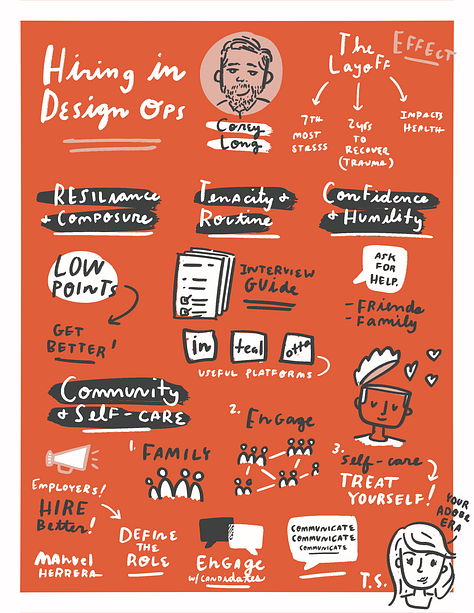 Hiring in
Design Ops
Corey
Long
The
Layoff
EFFECT
7TH
MOST
STRESS
2yrs
TO
RECOVER
(TRAUMA)
IMPACTS
HEALTH
RESILIANCE
+ COMPOSURE
Tenacity +
Routine
Confidence
+ Humility
LOW
POINTS
GET
BETTER!
INTERVIEW
GUIDE
ASK
FOR
HELP.
- FRIENDS
- Family
in
teal
otta
USEFUL PLATFORMS
Community
+ SELF-CARE
1. FAMILY
2. Engage
3. self-care
TREAT
YOURSELF!
EMPLOYERS!
HIRE
Better!
DEFINE
THE
ROLE
Engage
w/candidates
COMMUNICATE
COMMUNICATE
COMMUNICATE
YOUR
ADOBE
ERA
T.S.
MANUEL
HERRERA